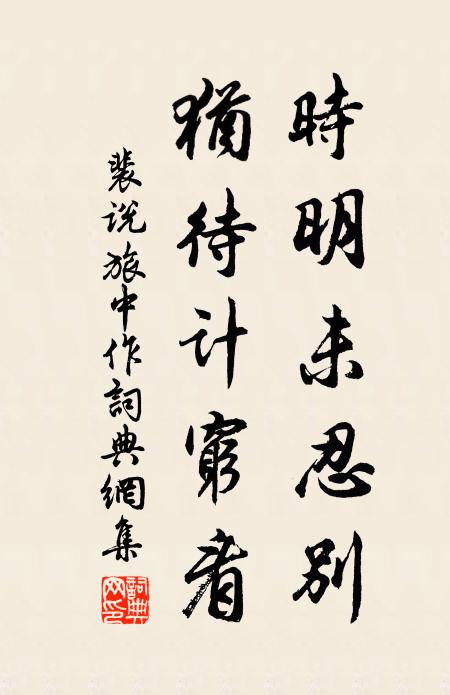 時明未忍别
猶待计窮看
裴说旅中作詞典網集
詞典網印